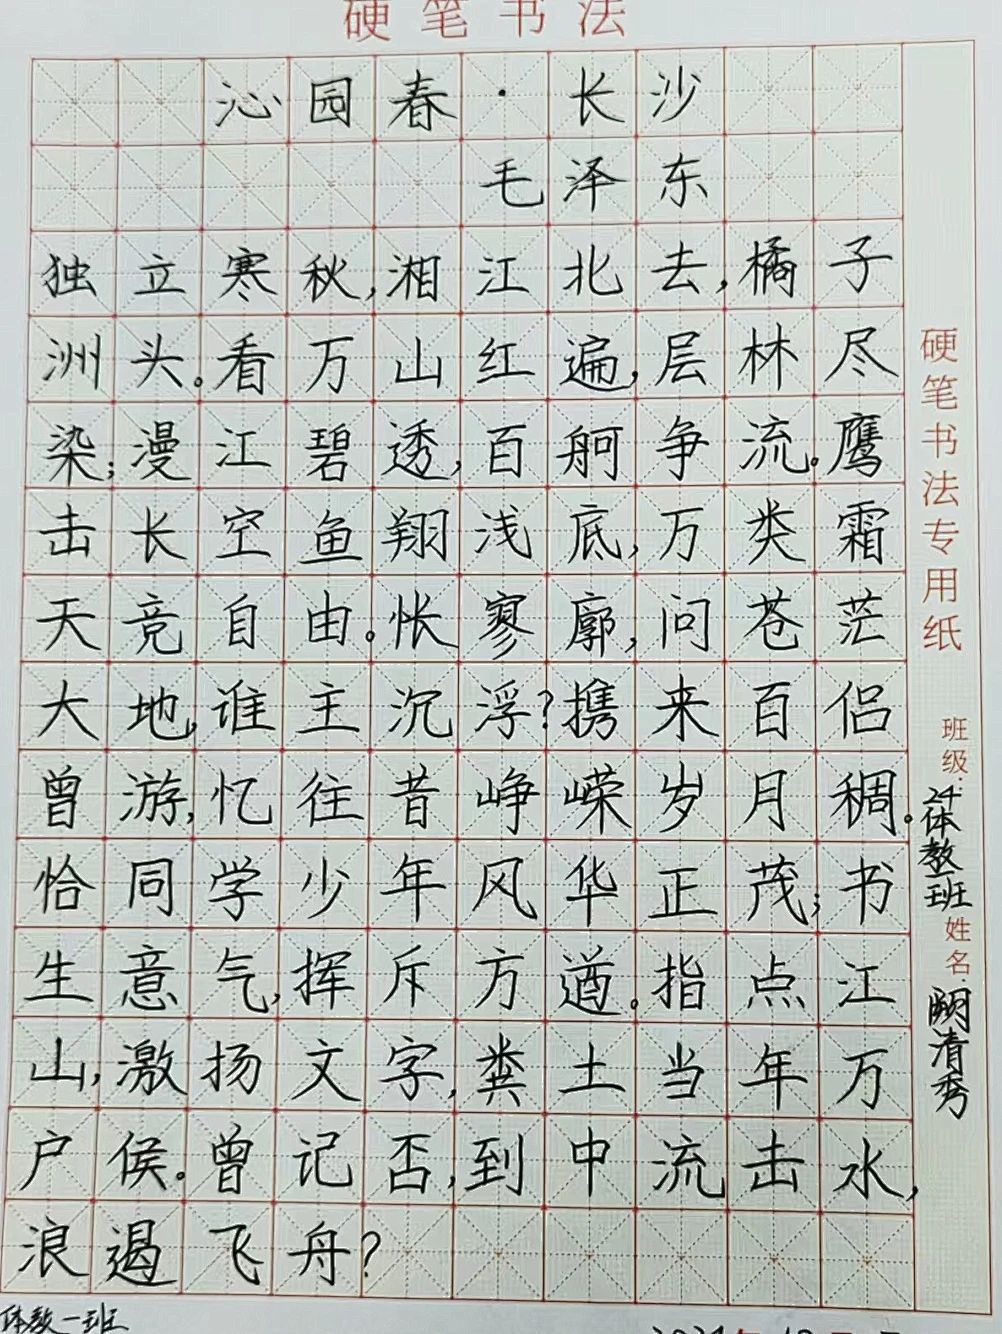 硬笔书法
沁园春·长沙
毛泽东
独立寒秋,湘江北去,橘子
洲头。看万山红遍,层林尽
染;漫江碧透,百舸争流。鹰
击长空鱼翔浅底,万类霜
天竞自由。怅寥廓,问苍茫
大地,谁主沉浮?携来百侣
曾游,忆往昔峥嵘岁月稠。
恰同学少年风华正茂;书
生意气,挥斥方遒。指点江
山,激扬文字,粪土当年万
户侯。曾记否,到中流击水,
浪遏飞舟?
硬笔书法专用纸
班级 24体教一班 姓名 清秀
体教一班